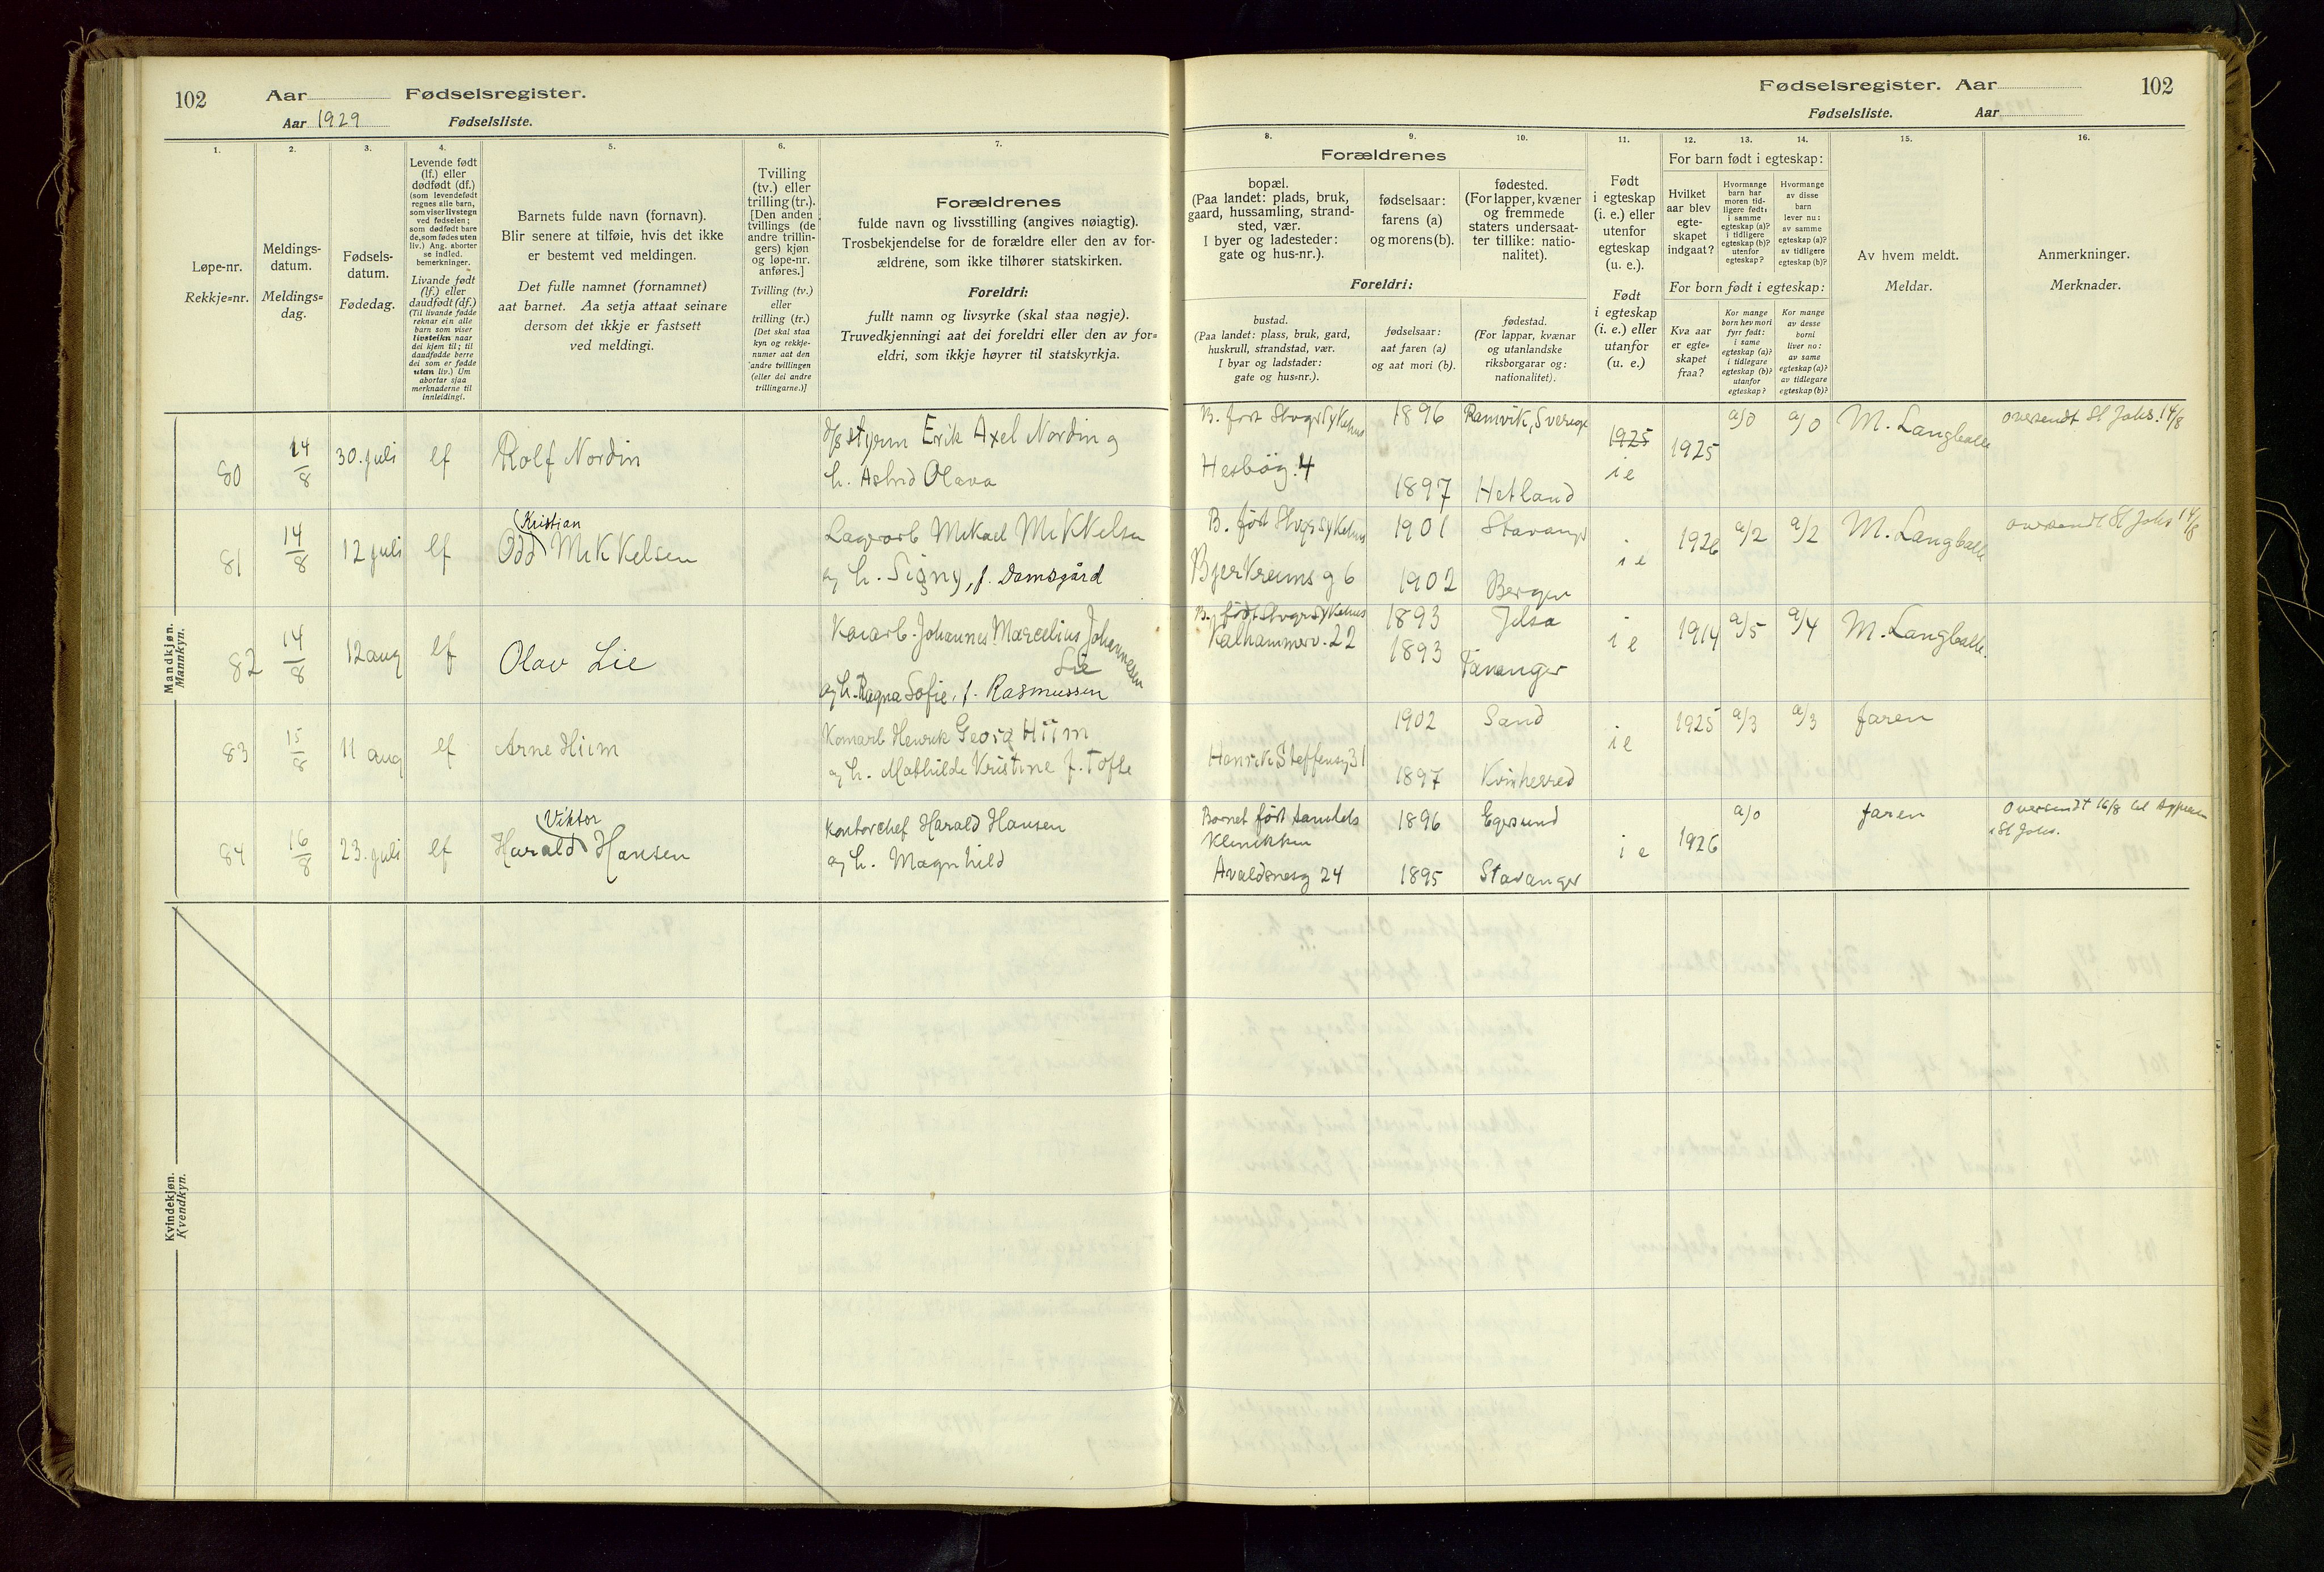 102 Aar Fødselsregister.
Aar 1929 Fødselsliste.
1. 2. 3. 4. 5. 6. 7.
Løpe-nr.
Rekkje=nr.
Meldings-
datum.
Meldings=
dag.
Fødsels-
datum.
Fødedag.
Levende født
(lf.) eller
dødfødt (df.)
(som levendefødt
regnes alle barn,
som viser livstegn
ved fødselen;
som dødfødt bare
de, som fødes uten
liv.) Ang. aborter
se indled.
bemerkninger.
Livande født
(lf.) eller
daudfødt (df.)
(Til livande fødde
reknar ein alle
barn som viser
livsteikn naar
dei kjem til; til
daudfødde berre
dei som er fødde
utan liv.) Um
abortar sjaa
merknaderne til
innleidingi.
Barnets fulde navn (fornavn).
Blir senere at tilføie, hvis det ikke
er bestemt ved meldingen.
Det fulle namnet (fornamnet)
aat barnet. Aa setja attaat seinare
dersom det ikkje er fastsett
ved meldingi.
Tvilling
(tv.) eller
trilling (tr.).
[Den anden
tvillings (de
andre trillin-
gers) kjøn
og løpe-nr.
anføres.]
Tvilling (tv.)
eller
trilling (tr.)
[Det skal staa
kyn og rekkje-
numer aat den
andre tvillingen
(eller dei andre
trillingarne.)]
Forældrenes
fulde navn og livsstilling (angives nøiagtig).
Trosbekjendelse for de forældre eller den av for-
ældrene, som ikke tilhører statskirken.
Foreldri:
fullt namn og livsyrke (skal staa nøgje).
Truvedkjenningi aat dei foreldri eller den av for=
eldri, som ikkje høyrer til statskyrkja.
Mandkjøn.
Mannkyn.
80 14/8 30. juli lf Rolf Nordin
styrm Erik Axel Nordin og
h. Astrid Olava
81 14/8 12 juli lf Kristian
Odd Mikkelsen
Lagerarb Mikael Mikkelsen
og h. Signy, f. Damsgård
82 14/8 12 aug lf Olav Lie
Johannes Marcelius Johannessen
Lie
og h. Ragna Sofie, f. Rasmussen
83 15/8 11 aug lf Arne Hiim
Henrik Georg Hiim
og h. Mathilde Kristine f. Tofte
84 16/8 23. juli lf Viktor
Harald Hansen
Kontorchef Harald Hansen
og h. Magnhild
Kvindekjøn.
Kvendkyn.
Fødselsregister. Aar 102
Fødselsliste. Aar
8. 9. 10. 11. 12. 13. 14. 15. 16.
Forældrenes
bopæl.
(Paa landet: plads, bruk,
gaard, hussamling, strand-
sted, vær.
I byer og ladesteder:
gate og hus-nr.).
fødselsaar:
farens (a)
og morens (b).
fødested.
(For lapper, kvæner
og fremmede
staters undersaat-
ter tillike: natio-
nalitet).
Foreldri:
bustad.
(Paa landet: plass, bruk, gard,
huskrull, strandstad, vær.
I byar og ladstader:
gate og hus=nr.).
fødselsaar:
aat faren (a)
og aat mori (b).
fødestad.
(For lappar, kvænar
og utanlandske
riksborgarar og:
nationalitet).
Født
i egteskap
(i. e.) eller
utenfor
egteskap
(u. e.).
Født
i egteskap
(i. e.) eller
utanfor
(u. e.)
For barn født i egteskap:
Hvilket
aar blev
egte-
skapet
indgaat?
Hvormange
barn har
moren tid-
ligere født:
i samme
egteskap (a)?
i tidligere
egteskap (b)?
utenfor
egteskap?
Hvormange
av disse
barn
lever nu:
av samme
egteskap (a)?
av tidligere
egteskap (b)?
For born født i egteskap:
Kva aar
er egte=
skapet
fraa?
Kor mange
born hev mori
fyrr født:
i same
egteskap (a)?
i tidlegare
egteskap (b)?
utanfor
egteskap?
Kor mange
av desse
borni
liver no:
av same
egteskap (a)?
av tidlegare
egteskap (b)?
Av hvem meldt.
Meldar.
Anmerkninger.
Merknader.
B. født Stvgr Sykehus 1896 Ramvik, Sverige 1925 a/0 a/0 M. Langballe oversendt St Johs. 14/8
Hesbøg. 4 1897 Hetland i e 1925
B. født Stvgr Sykehus 1901 Stavanger 1926 a/2 a/2 M. Langballe oversendt St Johs 14/8
Bjerkreimsg 6 1902 Bergen i e
B. født Stvgr Sykehus 1893 Jelsa i e 1914 a/5 a/4 M. Langballe.
Kalhammerv. 22 1893 Tananger
1902 Sand i e 1925 a/3 a/3 faren
Henrik Steffensg 31 1897 Kvinherred
Barnet født 1896 Egersund a/0 faren Oversendt 16/8
Klinikken i e 1926 i St Johs.
Avaldsnesg 24 1895 Stavanger